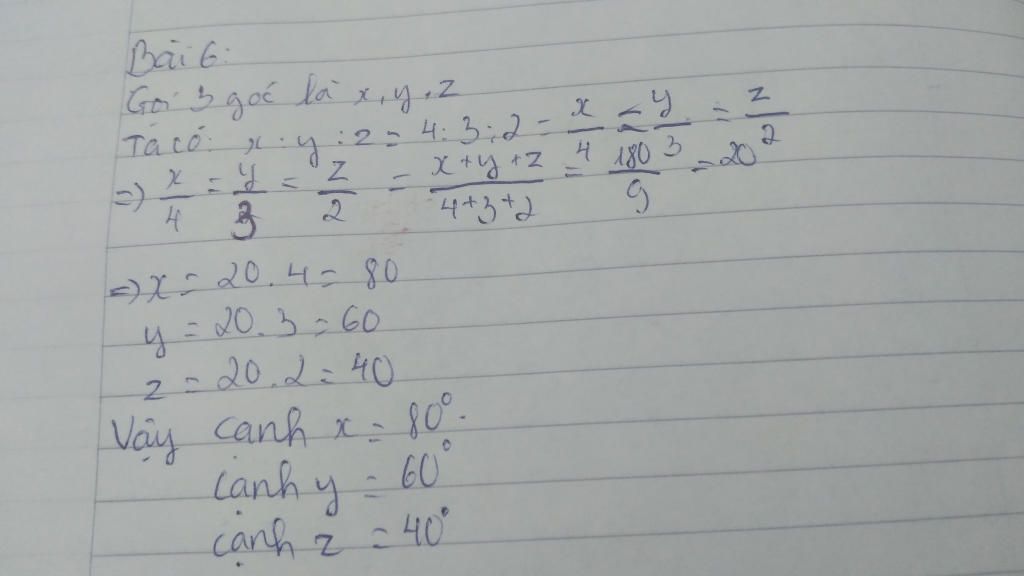 Bài 6:
Gọi 3 góc là x, y, z
Ta có: x : y : z = 4 : 3 : 2 = x/4 = y/3 = z/2
=> x/4 = y/3 = z/2 = x+y+z/4+3+2 = 180/9 = 20
=> x = 20.4 = 80
y = 20.3 = 60
z = 20.2 = 40
Vậy cạnh x = 80°.
cạnh y = 60°
cạnh z = 40°